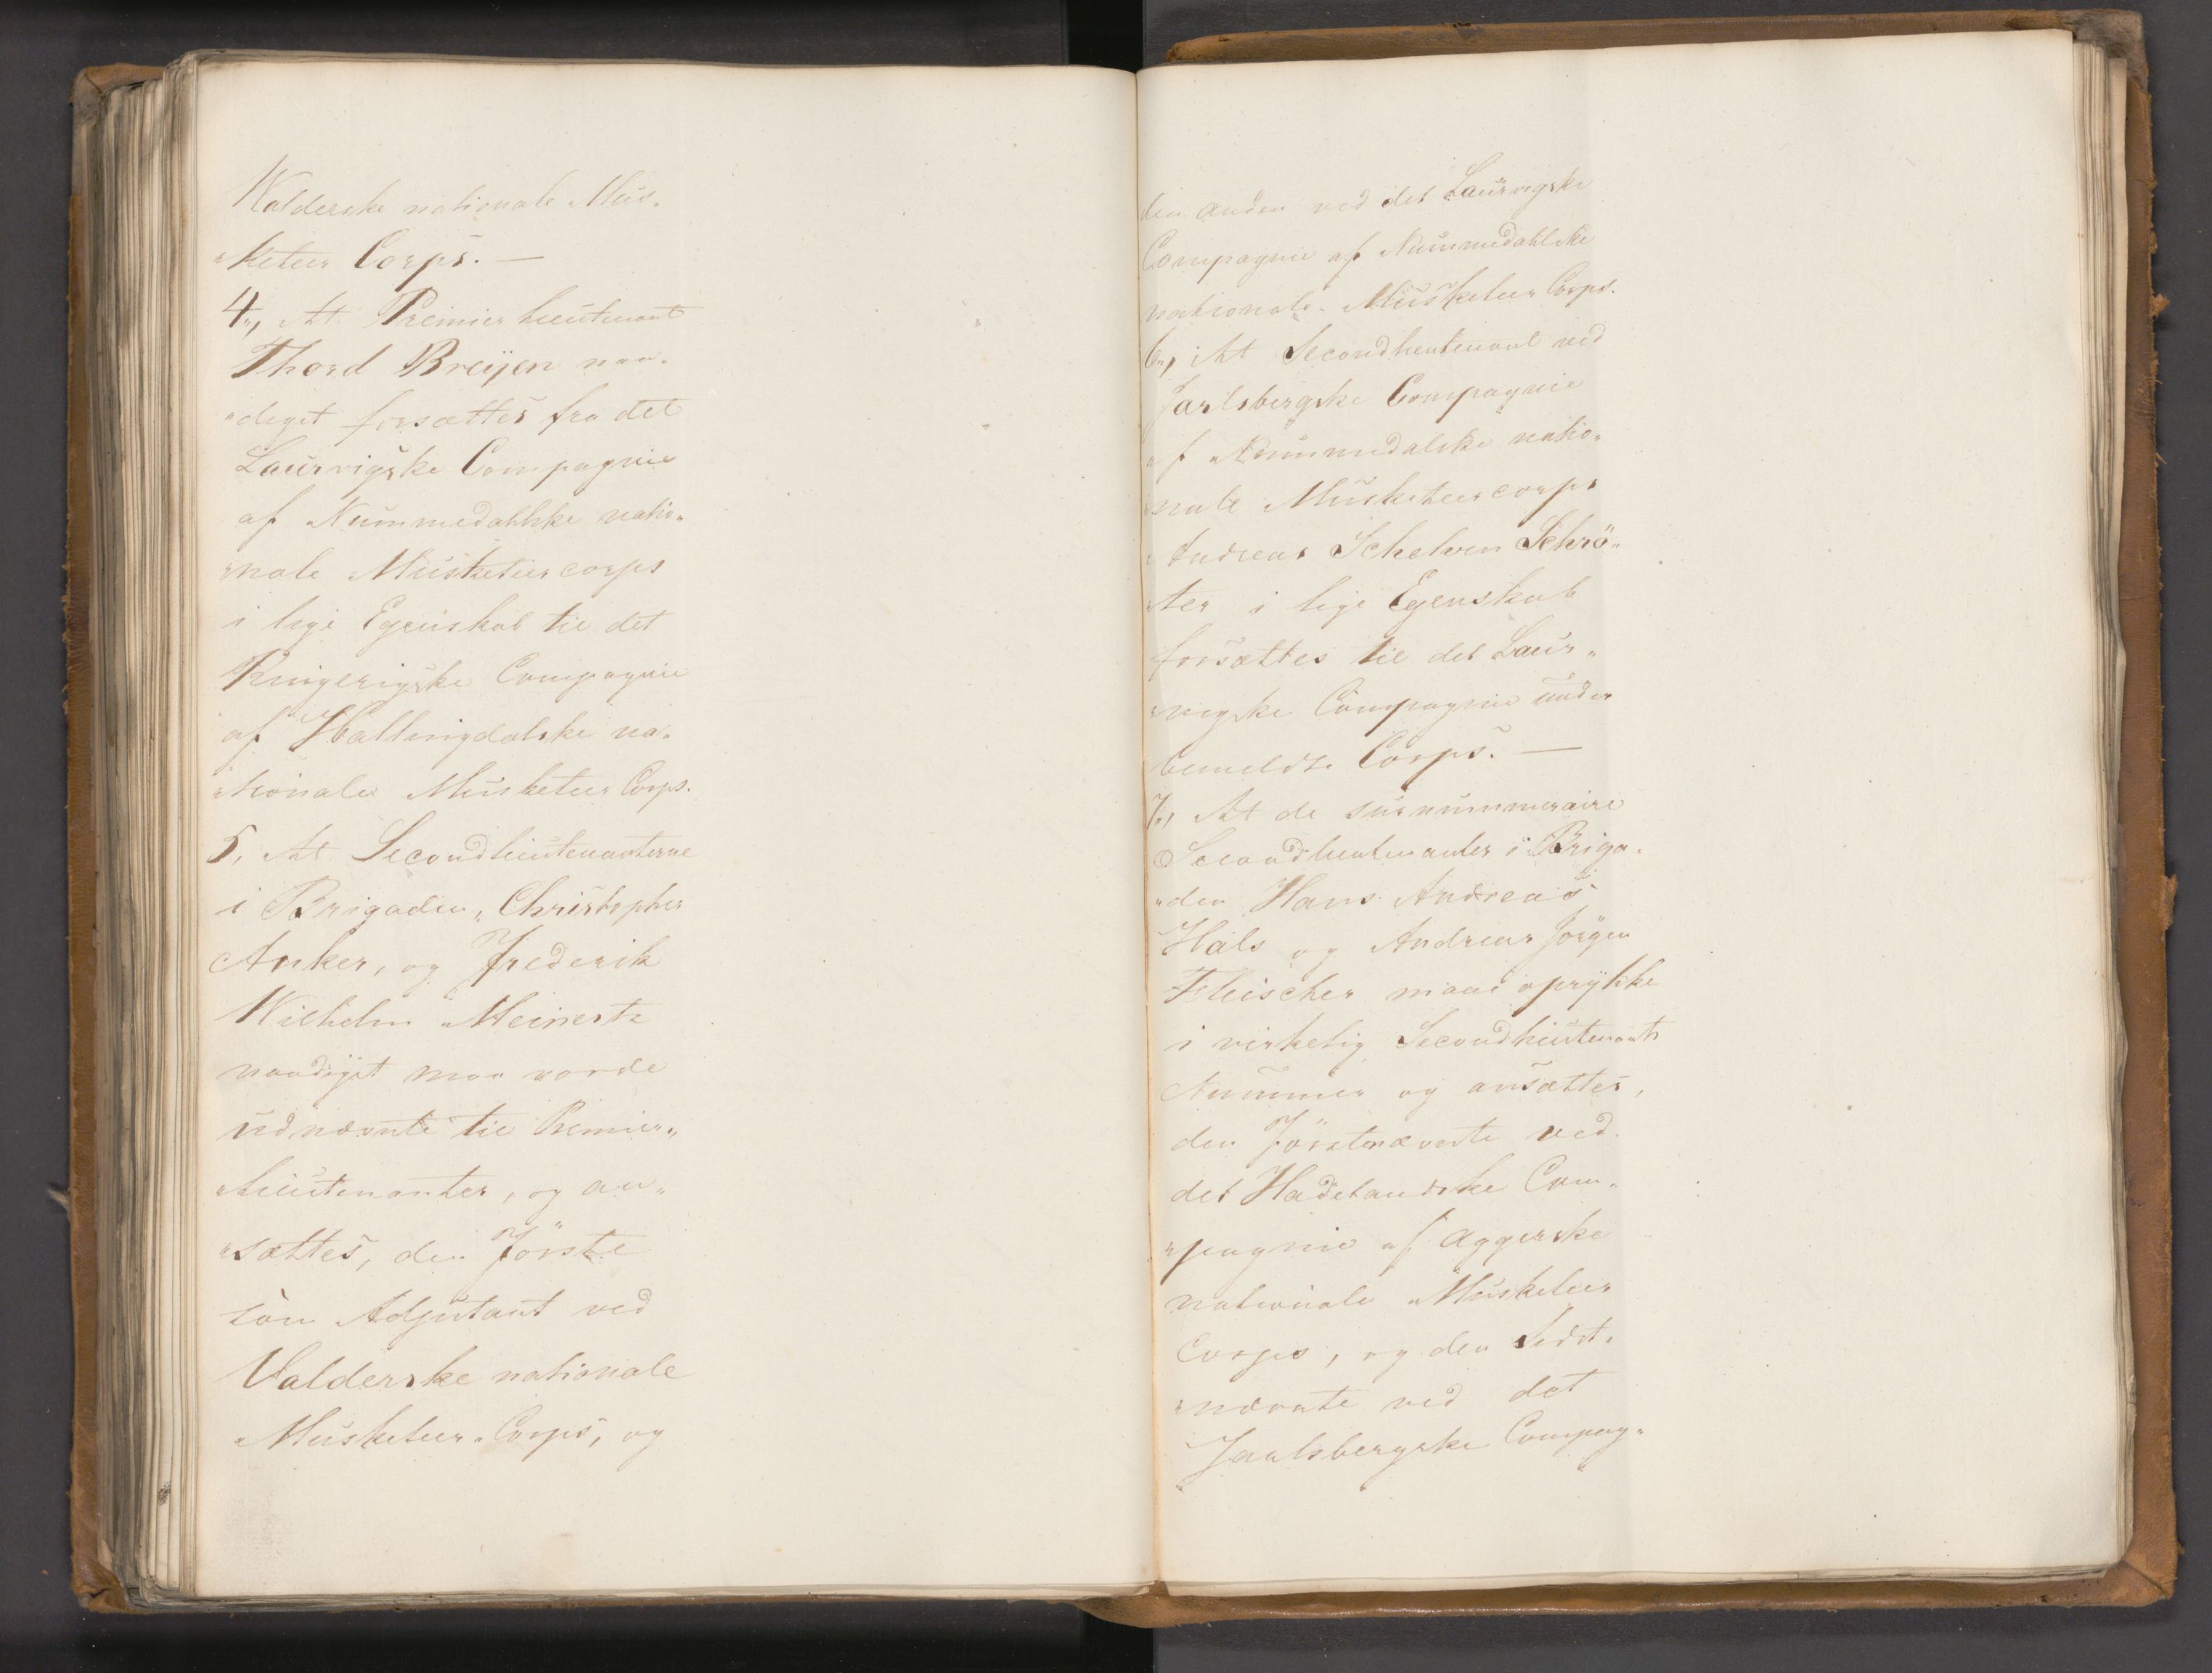 Walderske nationale Mus„
„keteer Corps. —
4„, At Premierlieutenant
Thord Breÿen naa„
„digst forsættes fra det
Laurvigske Compagnie
af Nummedahlske natio„
„nale Musketeercorps
i lige Egenskab til det
Ringerigske Compagnie
af Hallingdalske na„
„tionale Musketeer Corps.
5, At Secondlieutenanterne
i Brigaden, Christopher
Anker, og Frederik
Wilhelm Meinertz
naadigst maa vorde
udnævnte til Premier„
„lieutenanter, og an„
„sættes, den Förste
som Adjutant ved
Valderske nationale
Musketeer-Corps, og
den anden ved det Laurvigske
Compagnie af Nummedahlske
nationale Musketeer Corps.
6„, At Secondlieutenant ved
Jarlsbergske Compagnie
af Nummedalske natio„
„nale Musketeercorps
Andreas Schelven Schrö„
„ter i lige Egenskab
forsættes til det Laur„
„vigske Compagnie under
bemeldte Corps. —
7„, At de surnummeraire
Secondlieutenanter i Briga„
„den Hans Andreas
Hals og Andreas Jörgen
Fleischer maae oprykke
i virkelig Secondlieutenants
Nummer og ansættes,
den Förstnævnte ved
det Hadelandske Com„
„pagnie af Aggerske
nationale Musketeer
Corps, og den Sidst„
„nævnte ved det
Jarlsbergske Compag„